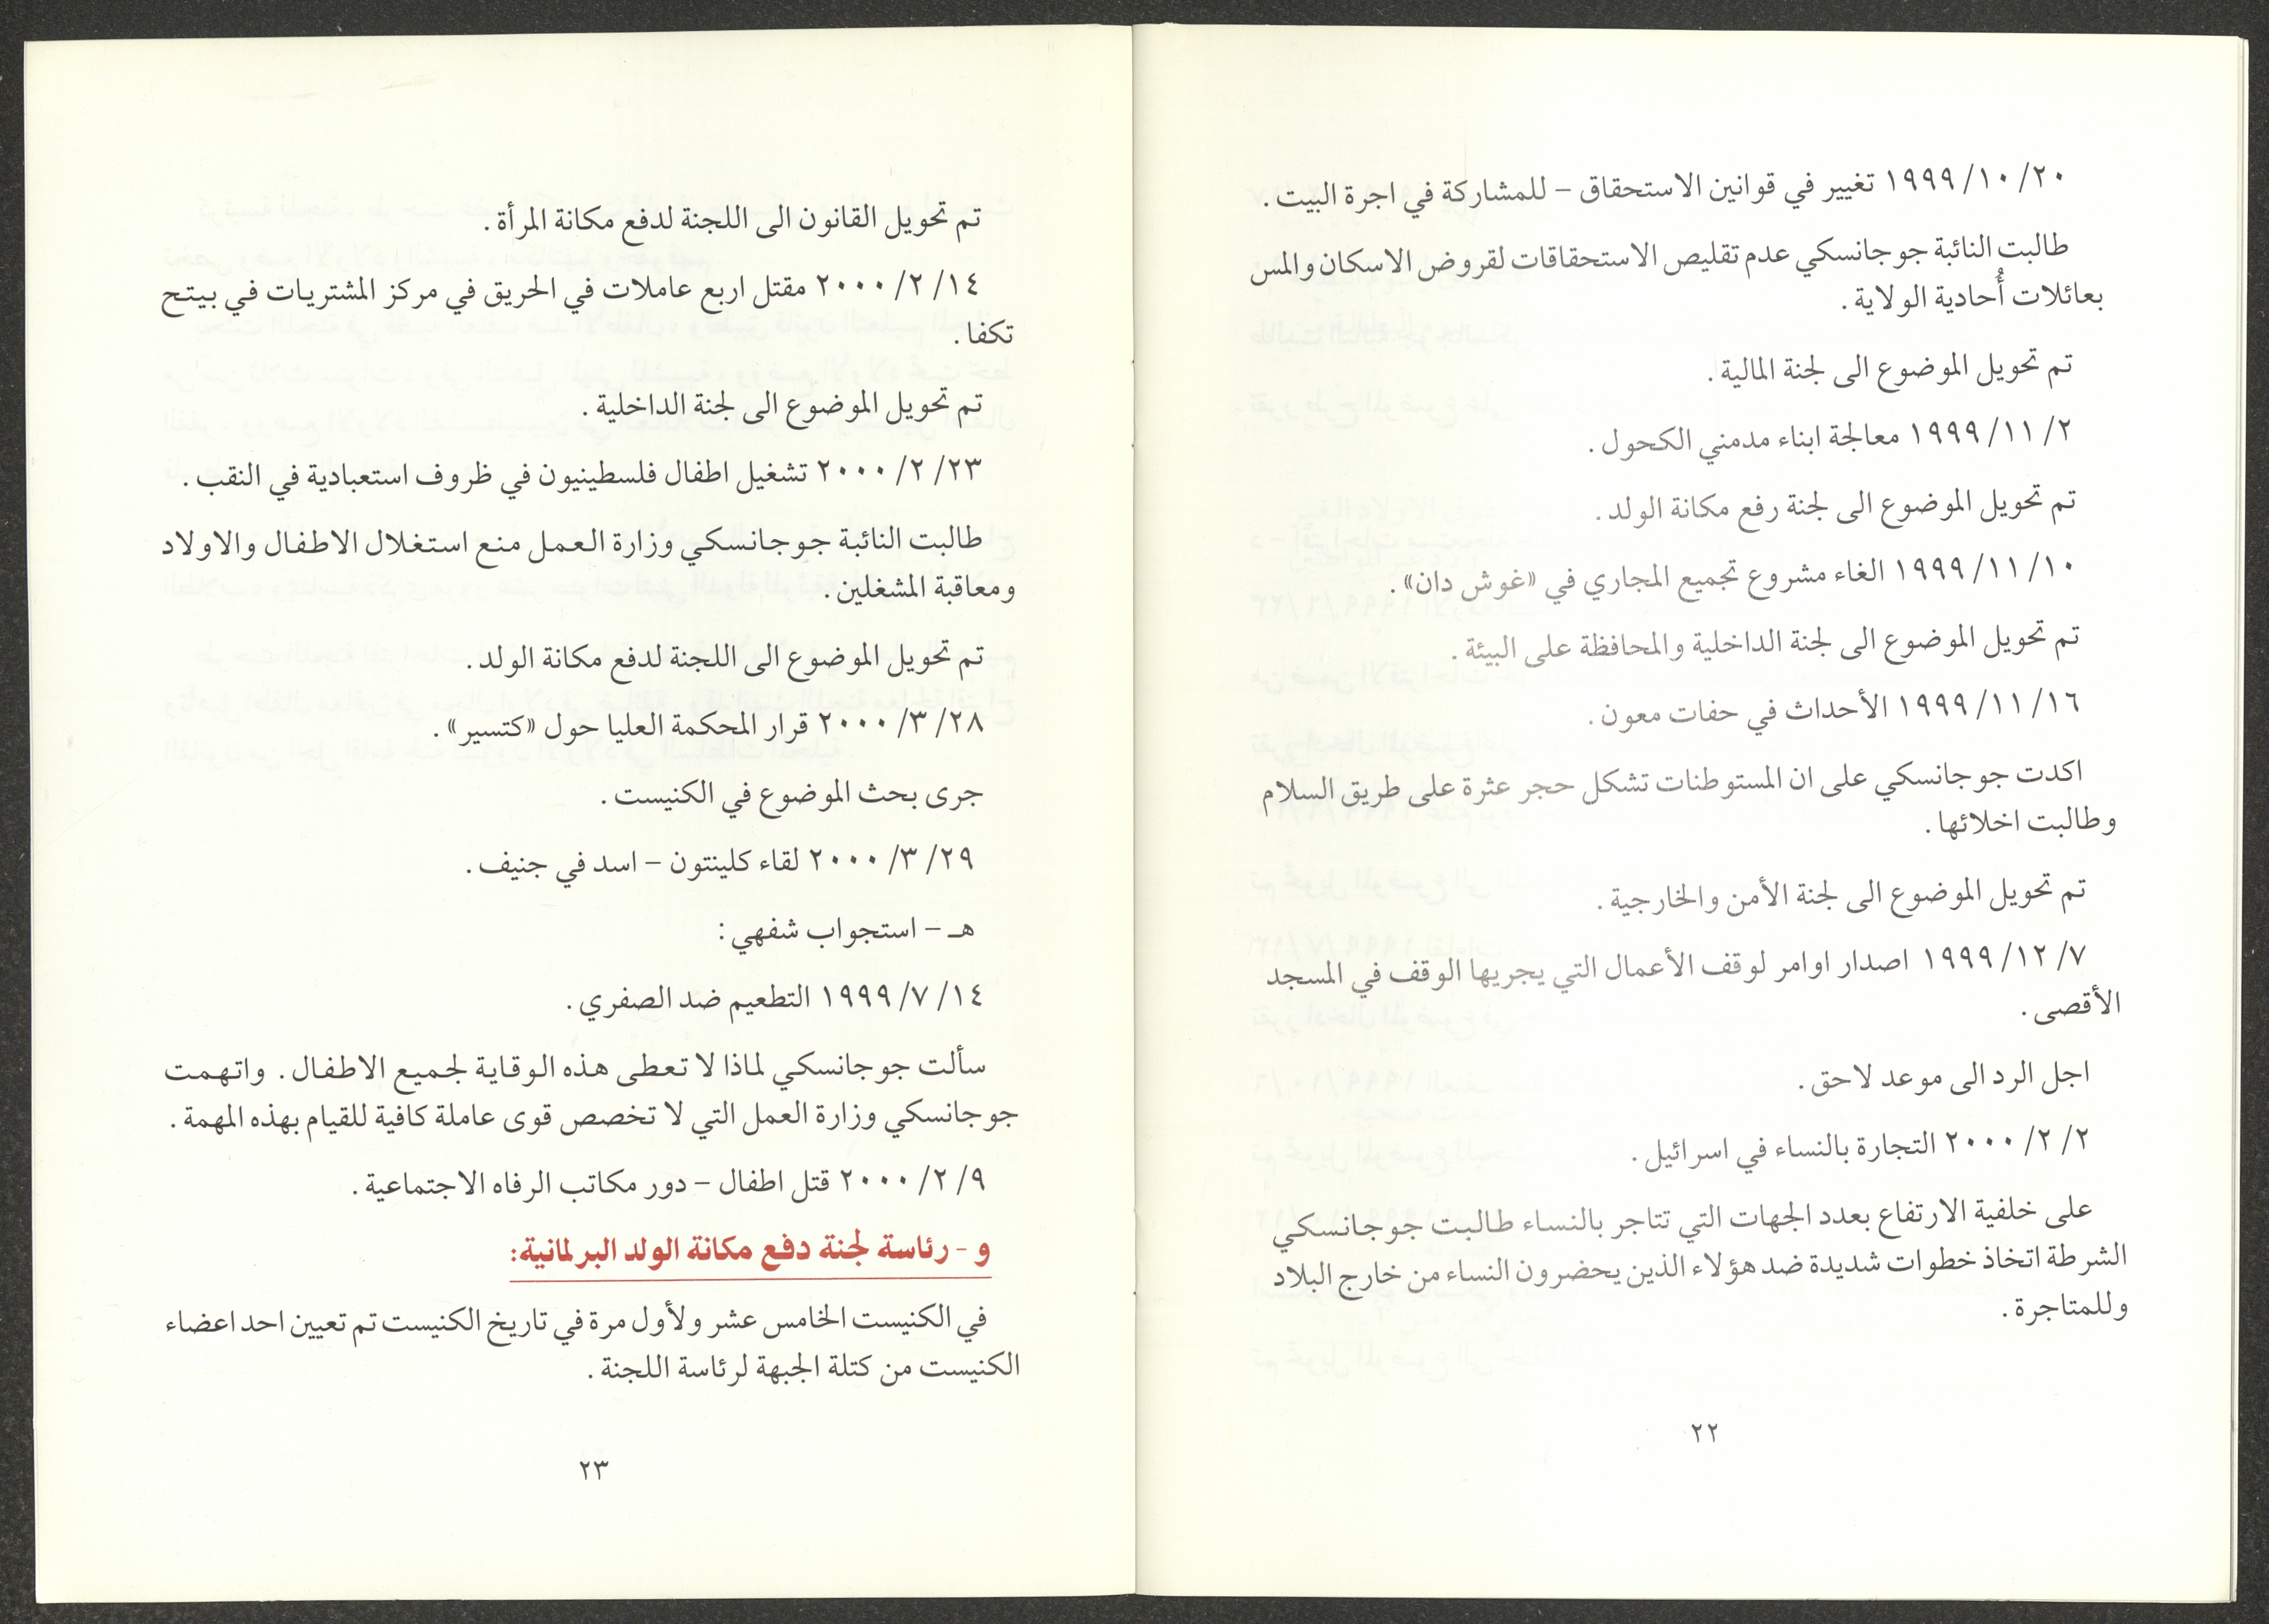 ٢٠/ ١٠/ ١٩٩٩ تغيير في قوانين الاستحقاق – للمشاركة في اجرة البيت.
طالبت النائبة جوجانسكي عدم تقليص الاستحقاقات لقروض الاسكان والمس
بعائلات أُحادية الولاية.
تم تحويل الموضوع الى لجنة المالية.
٢/ ١١/ ١٩٩٩ معالجة ابناء مدمني الكحول.
تم تحويل الموضوع الى لجنة رفع مكانة الولد.
١٠/ ١١/ ١٩٩٩ الغاء مشروع تجميع المجاري في «غوش دان».
تم تحويل الموضوع الى لجنة الداخلية والمحافظة على البيئة.
١٦/ ١١/ ١٩٩٩ الأحداث في حفات معون.
اكدت جوجانسكي على ان المستوطنات تشكل حجر عثرة على طريق السلام
وطالبت اخلائها.
تم تحويل الموضوع الى لجنة الأمن والخارجية.
٧/ ١٢/ ١٩٩٩ اصدار اوامر لوقف الأعمال التي يجريها الوقف في المسجد
الأقصى.
اجل الرد الى موعد لاحق.
٢/ ٢/ ٢٠٠٠ التجارة بالنساء في اسرائيل.
على خلفية الارتفاع بعدد الجهات التي تتاجر بالنساء طالبت جوجانسكي
الشرطة اتخاذ خطوات شديدة ضد هؤلاء الذين يحضرون النساء من خارج البلاد
وللمتاجرة.
٢٢
تم تحويل القانون الى اللجنة لدفع مكانة المرأة.
١٤/ ٢/ ٢٠٠٠ مقتل اربع عاملات في الحريق في مركز المشتريات في بيتح
تكفا.
تم تحويل الموضوع الى لجنة الداخلية.
٢٣/ ٢/ ٢٠٠٠ تشغيل اطفال فلسطينيون في ظروف استعبادية في النقب.
طالبت النائبة جوجانسكي وزارة العمل منع استغلال الاطفال والاولاد
ومعاقبة المشغلين.
تم تحويل الموضوع الى اللجنة لدفع مكانة الولد.
٢٨/ ٣/ ٢٠٠٠ قرار المحكمة العليا حول «كتسير».
جرى بحث الموضوع في الكنيست.
٢٩/ ٣/ ٢٠٠٠ لقاء كلينتون – اسد في جنيف.
هـ – استجواب شفهي:
١٤/ ٧/ ١٩٩٩ التطعيم ضد الصفري.
سألت جوجانسكي لماذا لا تعطى هذه الوقاية لجميع الاطفال. واتهمت
جوجانسكي وزارة العمل التي لا تخصص قوى عاملة كافية للقيام بهذه المهمة.
٩/ ٢/ ٢٠٠٠ قتل اطفال – دور مكاتب الرفاه الاجتماعية.
و - رئاسة لجنة دفع مكانة الولد البرلمانية:
في الكنيست الخامس عشر ولأول مرة في تاريخ الكنيست تم تعيين احد اعضاء
الكنيست من كتلة الجبهة لرئاسة اللجنة.
٢٣